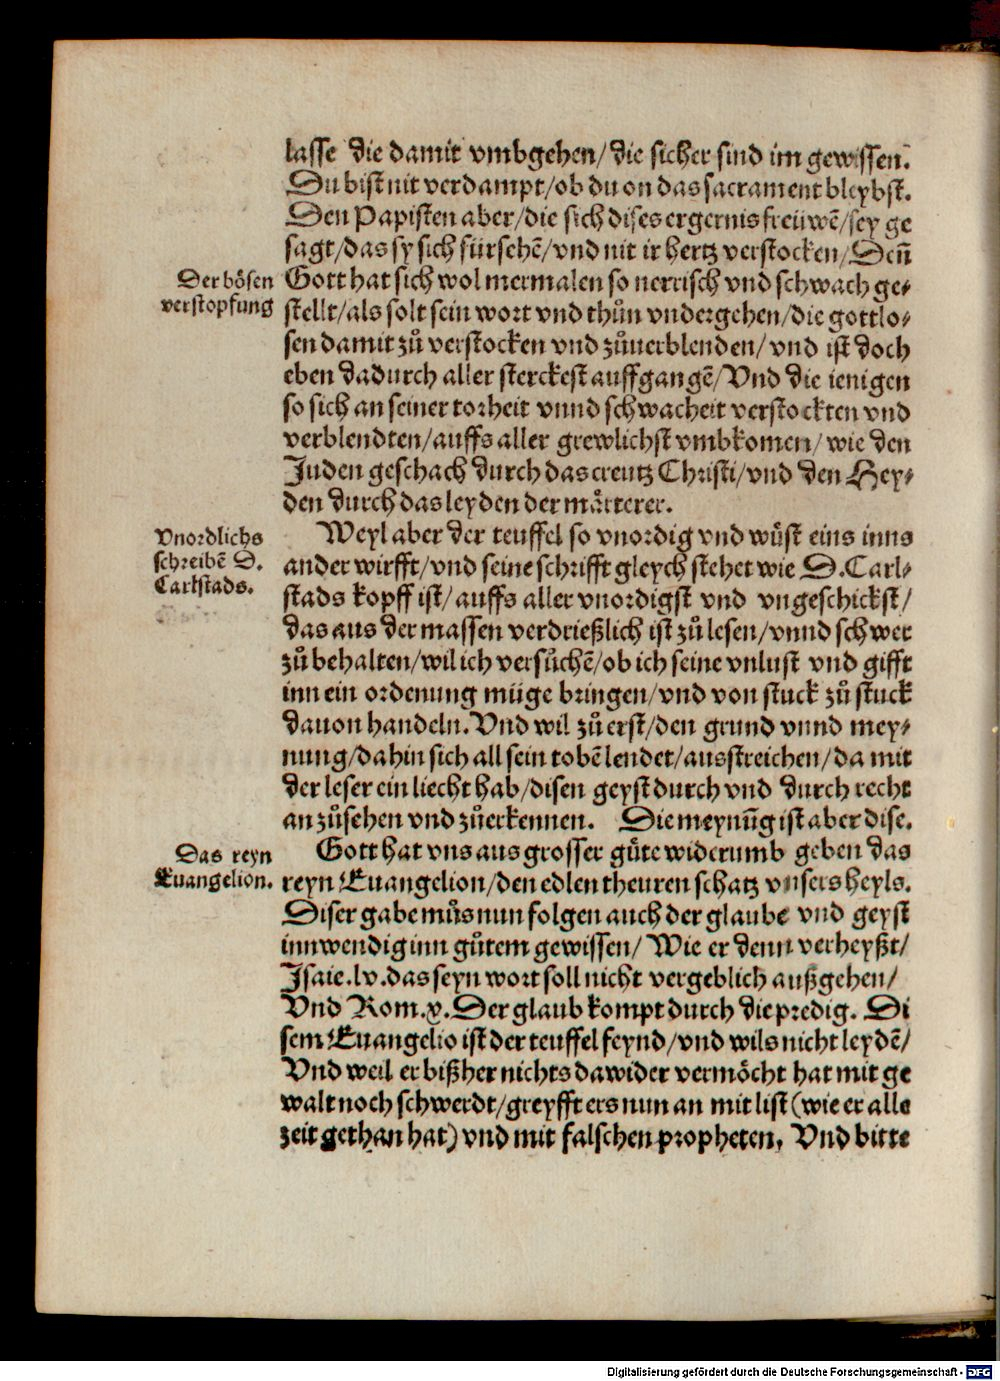 lasse die damit vmbgehen/die sicher sind im gewissen.
Du bist nit verdampt/ob du on das sacrament bleybst.
Den Papisten aber/die sich dises ergernis freüwē/sey ge
sagt/das sy sich fürsehē/vnd nit ir hertz verstocken/Deñ
Der bösen
verstopfung
Gott hat sich wol mermalen so nerrisch vnd schwach ge-
stellt/als solt sein wort vnd thůn vndergehen/die gottlo-
sen damit zů verstocken vnd zůuerblenden/vnd ist doch
eben dadurch aller sterckest auffgangē/Vnd die ienigen
so sich an seiner torheit vnnd schwacheit verstockten vnd
verblendten/auffs aller grewlichst vmbkomen/wie den
Juden geschach durch das creutz Christi/vnd den Hey-
den durch das leyden der märterer.
Vnordlichs
schreibē D.
Carlstads.
Weyl aber der teuffel so vnordig vnd wůst eins inns
ander wirfft/vnd seine schrifft gleych stehet wie D.Carl-
stads kopff ist/auffs aller vnordigst vnd vngeschickst/
das aus der massen verdrießlich ist zů lesen/vnnd schwer
zů behalten/wil ich versůchē/ob ich seine vnlust vnd gifft
inn ein ordenung müge bringen/vnd von stuck zů stuck
dauon handeln.Vnd wil zů erst/den grund vnnd mey-
nung/dahin sich all sein tobē lendet/ausstreichen/da mit
der leser ein liecht hab/disen geyst durch vnd durch recht
an zůsehen vnd zůerkennen. Die meynũg ist aber dise.
Das reyn
Euangelion.
Gott hat vns aus grosser gůte widerumb geben das
reyn Euangelion/den edlen theuren schatz vnsers heyls.
Diser gabe můs nun folgen auch der glaube vnd geyst
innwendig inn gůtem gewissen/Wie er denn verheyßt/
Isaie.lv.das seyn wort soll nicht vergeblich außgehen/
Vnd Rom.x.Der glaub kompt durch die predig. Di
sem Euangelio ist der teuffel feynd/vnd wils nicht leydē/
Vnd weil er bißher nichts dawider vermöcht hat mit ge
walt noch schwerdt/greyfft ers nun an mit list(wie er alle
zeit gethan hat)vnd mit falschen propheten, Vnd bitte
Digitalisierung gefördert durch die Deutsche Forschungsgemeinschaft - DFG